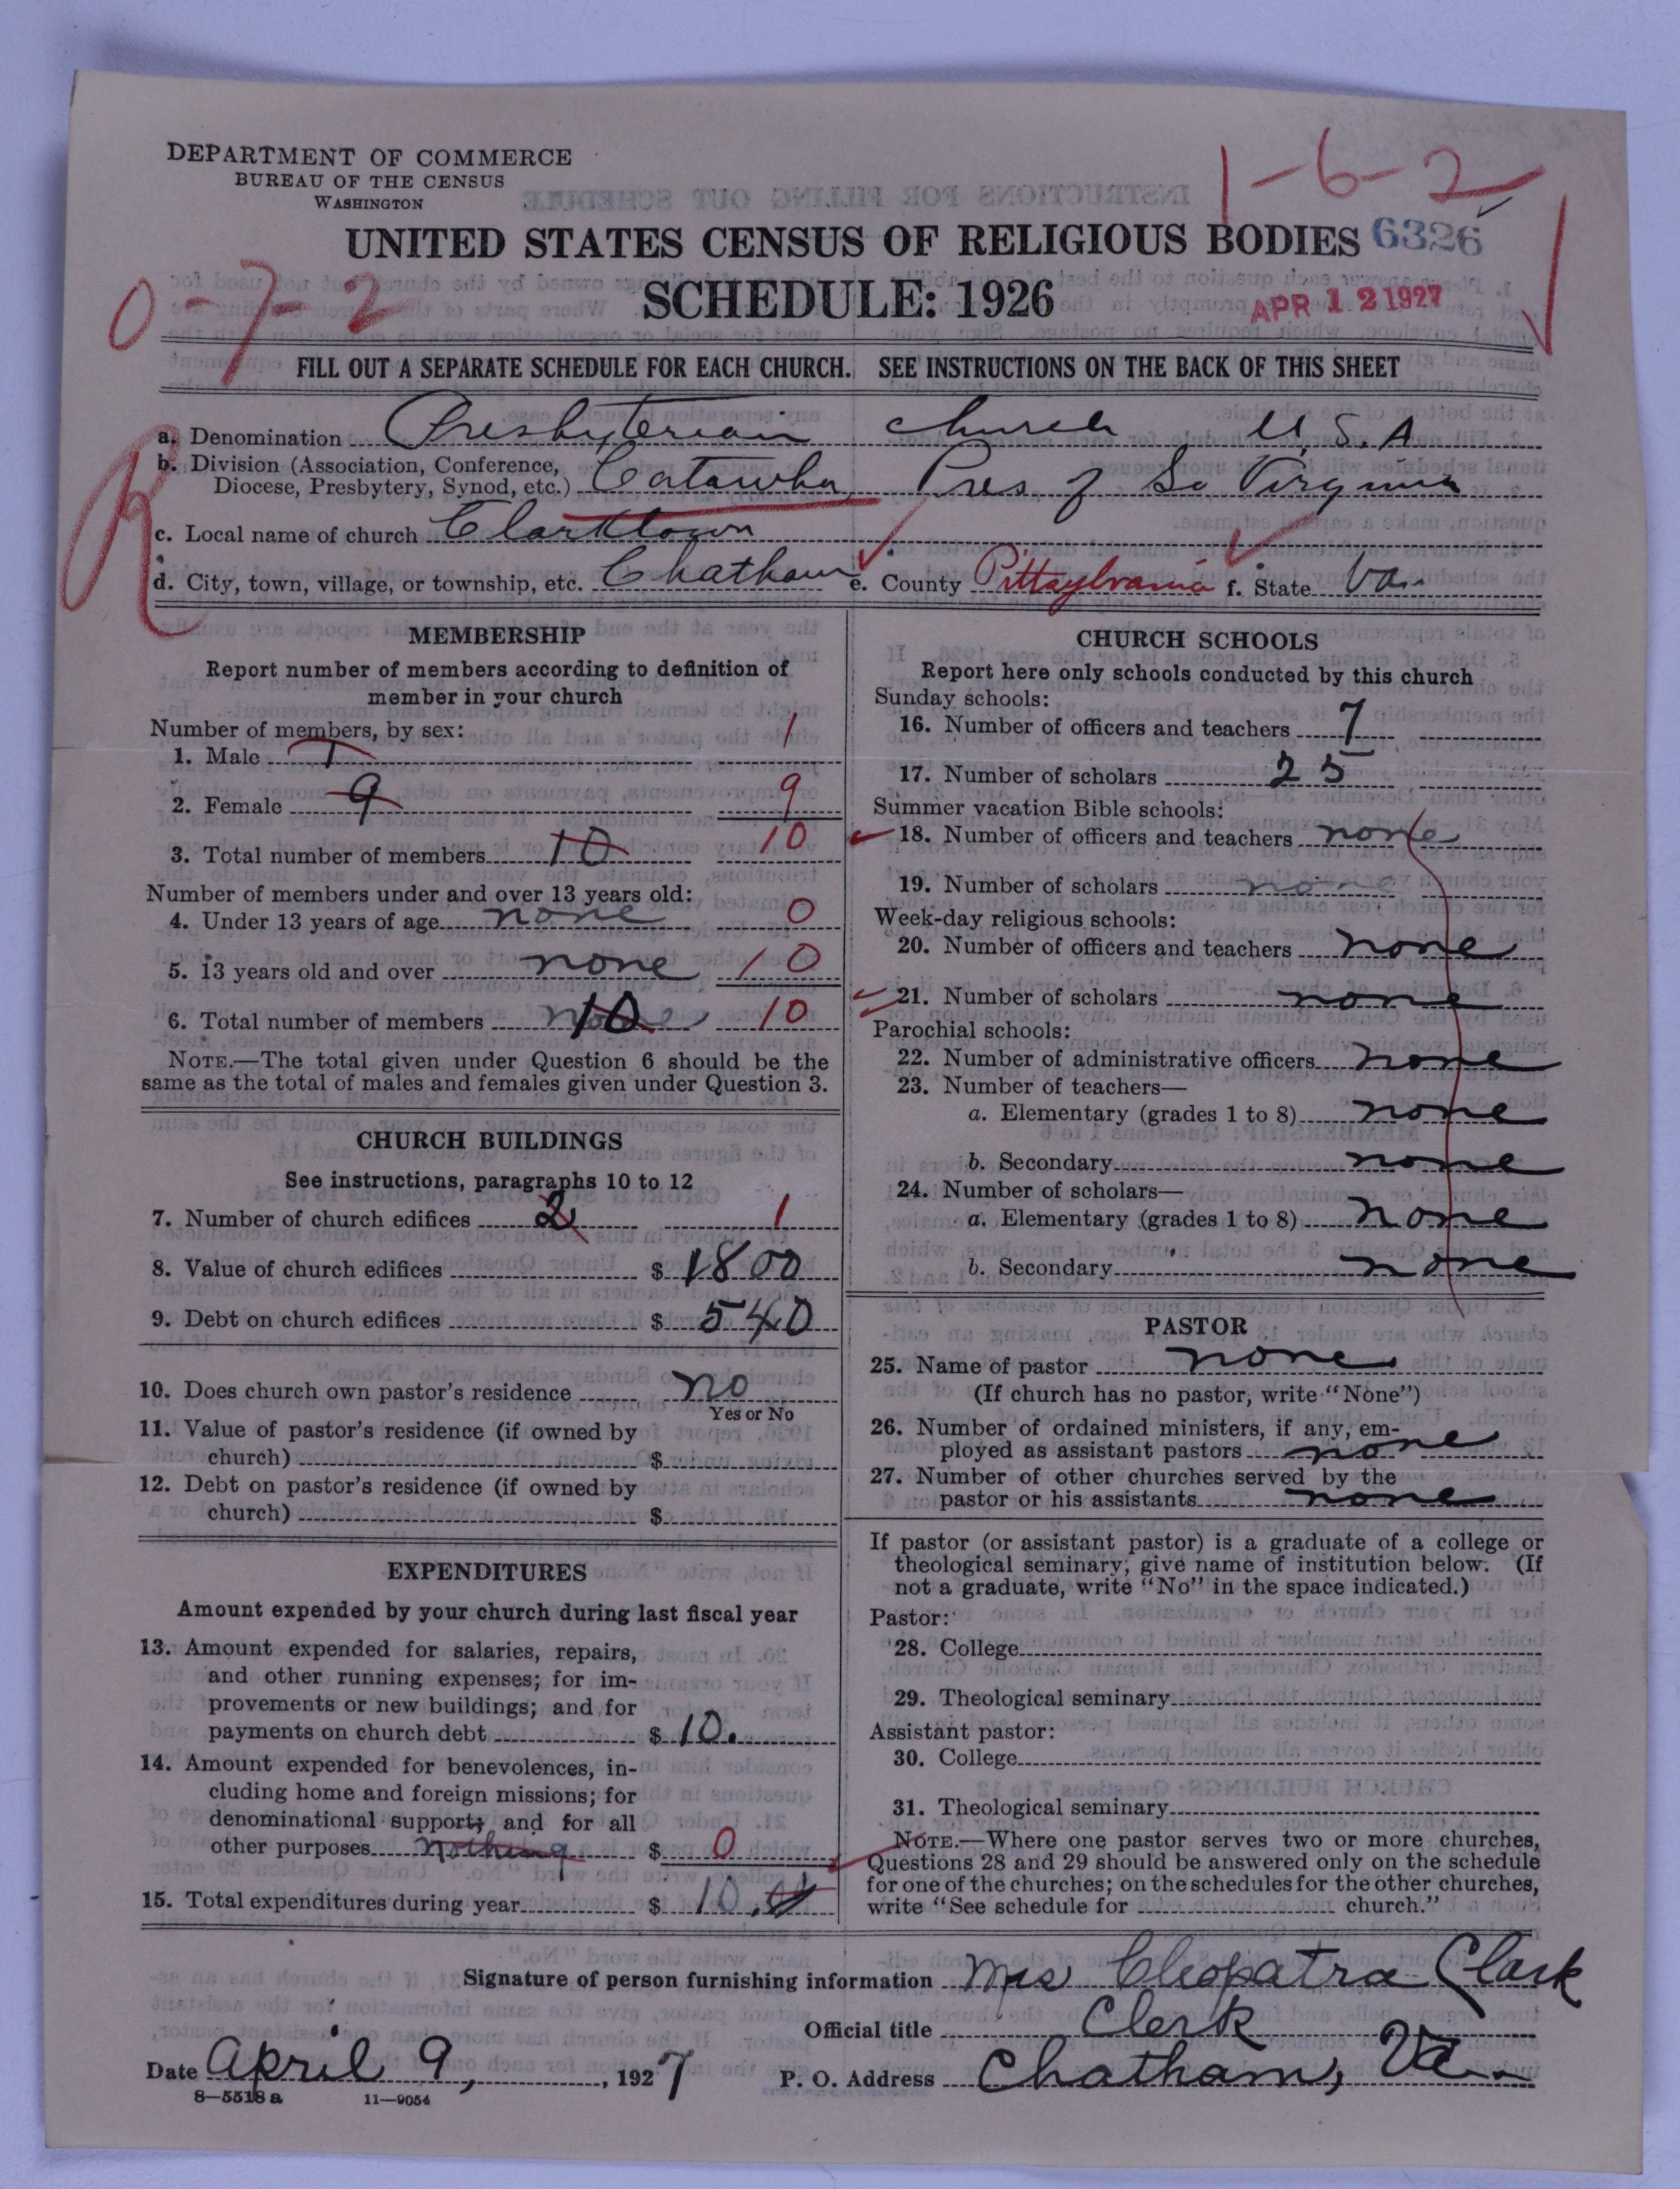 1-6-2
DEPARTMENT OF COMMERCE
BUREAU OF THE CENSUS
WASHINGTON
UNITED STATES CENSUS OF RELIGIOUS BODIES 6326
SCHEDULE: 1926
APR 12 1927
0-7-2
FILL OUT A SEPARATE SCHEDULE FOR EACH CHURCH. SEE INSTRUCTIONS ON THE BACK OF THIS SHEET
R
a. Denomination Presbyterian church U.S.A
b. Division (Association, Conference,
Diocese, Presbytery, Synod, etc.) Catawba Pres of So Virginia
c. Local name of church Clarktown
d. City, town, village, or township, etc. Chatham e. County Pittsylvania f. State Va.
MEMBERSHIP
Report number of members according to definition of
member in your church
Number of members, by sex:
1. Male 1 1
2. Female 9 9
3. Total number of members 10 10
Number of members under and over 13 years old:
4. Under 13 years of age none 0
5. 13 years old and over none 10
6. Total number of members none 10 10
NOTE.—The total given under Question 6 should be the
same as the total of males and females given under Question 3.
CHURCH BUILDINGS
See instructions, paragraphs 10 to 12
7. Number of church edifices 2 1
8. Value of church edifices $ 1800
9. Debt on church edifices $ 540
10. Does church own pastor's residence no
Yes or No
11. Value of pastor's residence (if owned by
church) $
12. Debt on pastor's residence (if owned by
church) $
EXPENDITURES
Amount expended by your church during last fiscal year
13. Amount expended for salaries, repairs,
and other running expenses; for im-
provements or new buildings; and for
payments on church debt $ 10.
14. Amount expended for benevolences, in-
cluding home and foreign missions; for
denominational support; and for all
other purposes nothing $ 0
15. Total expenditures during year $ 10.
CHURCH SCHOOLS
Report here only schools conducted by this church
Sunday schools:
16. Number of officers and teachers 7
17. Number of scholars 25
Summer vacation Bible schools:
18. Number of officers and teachers none
19. Number of scholars none
Week-day religious schools:
20. Number of officers and teachers none
21. Number of scholars none
Parochial schools:
22. Number of administrative officers none
23. Number of teachers—
a. Elementary (grades 1 to 8) none
b. Secondary none
24. Number of scholars—
a. Elementary (grades 1 to 8) none
b. Secondary none
PASTOR
25. Name of pastor none
(If church has no pastor, write "None")
26. Number of ordained ministers, if any, em-
ployed as assistant pastors none
27. Number of other churches served by the
pastor or his assistants none
If pastor (or assistant pastor) is a graduate of a college or
theological seminary, give name of institution below. (If
not a graduate, write "No" in the space indicated.)
Pastor:
28. College
29. Theological seminary
Assistant pastor:
30. College
31. Theological seminary
NOTE.—Where one pastor serves two or more churches,
Questions 28 and 29 should be answered only on the schedule
for one of the churches; on the schedules for the other churches,
write "See schedule for church."
Signature of person furnishing information Mrs Cleopatra Clark
Official title Clerk
Date April 9, 1927 P. O. Address Chatham, Va.
8—5518 a 11—9054